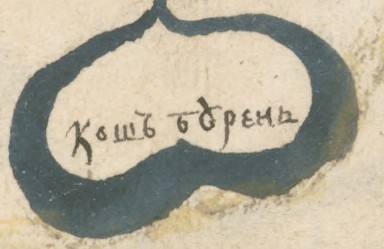 Кошъ бꙋрень